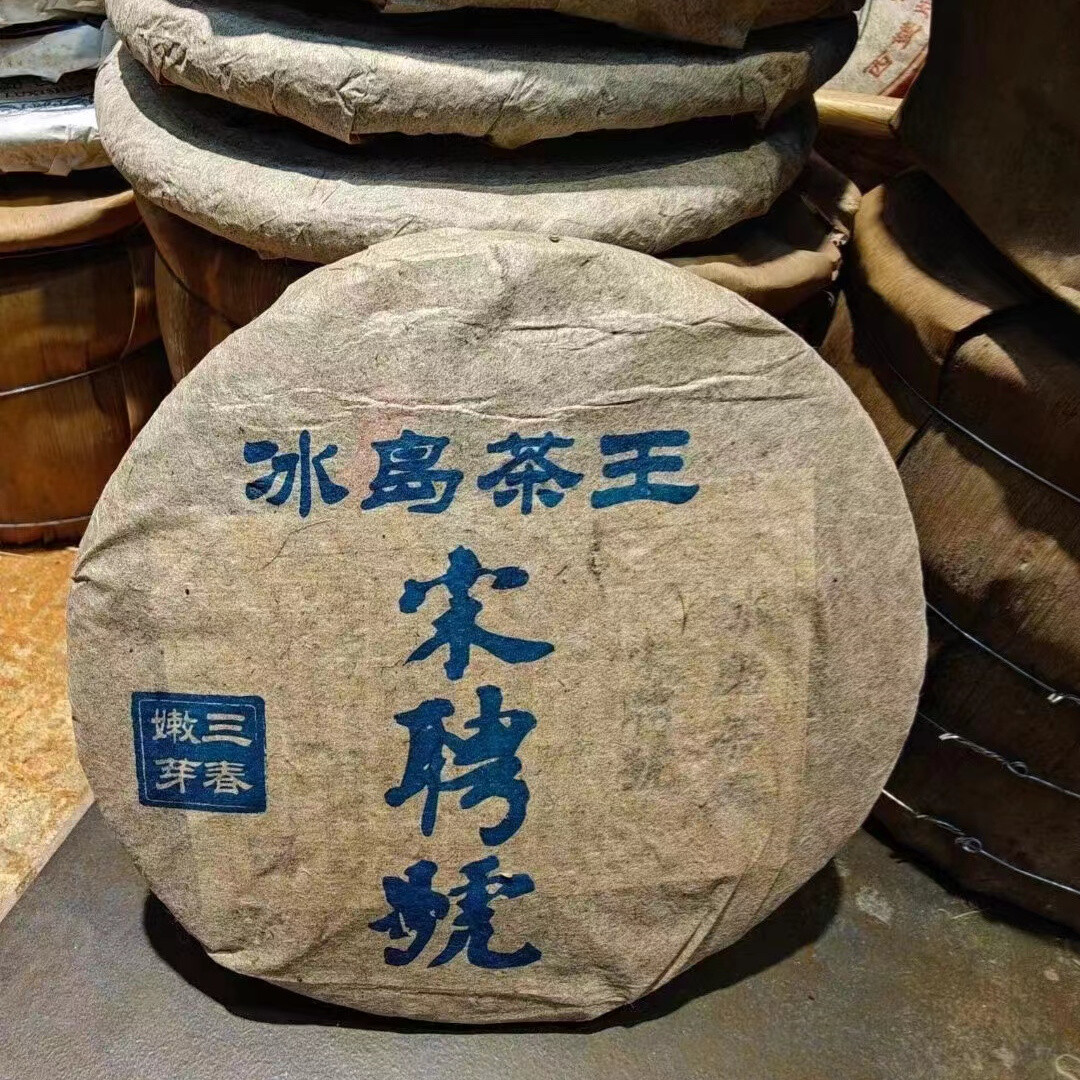 冰岛茶王
宋聘號
三春
嫩芽